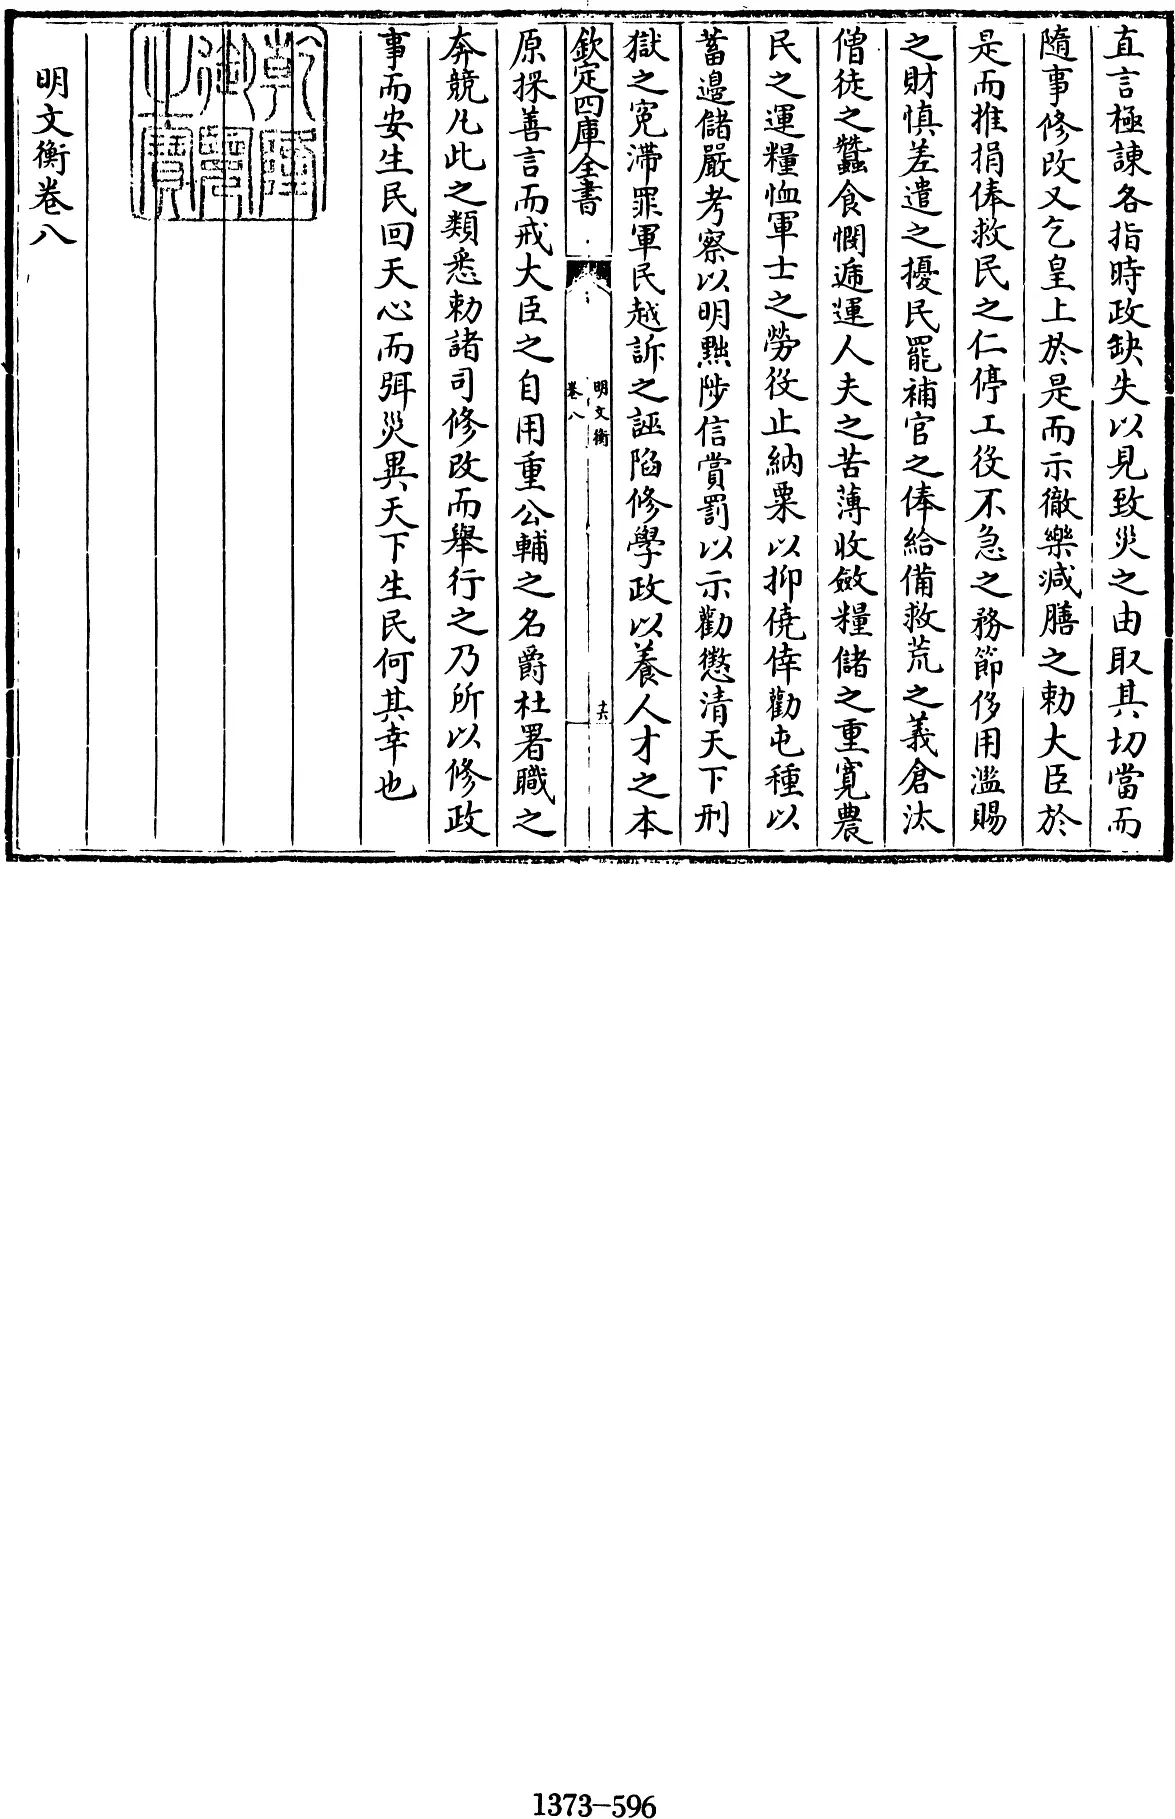 直言極諫各指時政缺失以見致災之由取其切當而
隨事修改又乞皇上於是而示徹樂減膳之勅大臣於
是而推捐俸救民之仁停工役不急之務節侈用濫賜
之財慎差遣之擾民罷補官之俸給備救荒之義倉汰
僧徒之蠶食憫逓運人夫之苦薄收斂糧儲之重寬農
民之運糧恤軍士之勞役止納粟以抑僥倖勸屯種以
蓄邊儲嚴考察以明黜陟信賞罰以示勸懲清天下刑
獄之寃滯罪軍民越訴之誣陷修學政以養人才之本
欽定四庫全書
明文衡
卷八
十六
原採善言而戒大臣之自用重公輔之名爵杜署職之
奔競凡此之類悉勅諸司修改而舉行之乃所以修政
事而安生民回天心而弭災異天下生民何其幸也
乾隆御覽之寶
明文衡卷八
1373-596